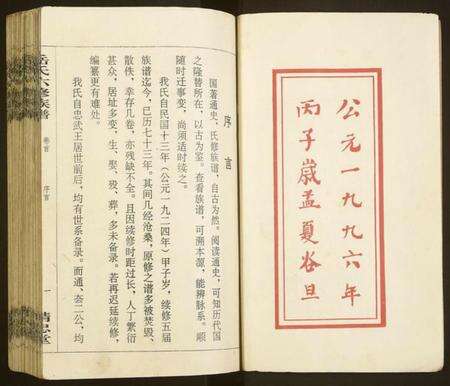 公元一九九六年
丙子歲孟夏谷旦
序言
国著通史，氏修族谱，自古为然。阅读通史，可知历代国
之隆替所在，以古为鉴。查看族谱，可溯本源，能辨脉系。顺
随时迁事变，尚须适时续之。
我氏自民国十三年（公元一九二四年）甲子岁，续修五届
族谱迄今，已历七十三年。其间几经沧桑，原修之谱多被焚毁、
散佚，幸存几卷，亦残缺不全。且因续修时距过长，人丁繁衍
甚众，居址多变，生、娶、殁、葬，多未备录。若再迟延续修，
编纂更有难处。
我氏自忠武王居世前后，均有世系备录。而通、夽二公，均
岳氏六修族谱
卷首
序言
一
精忠堂